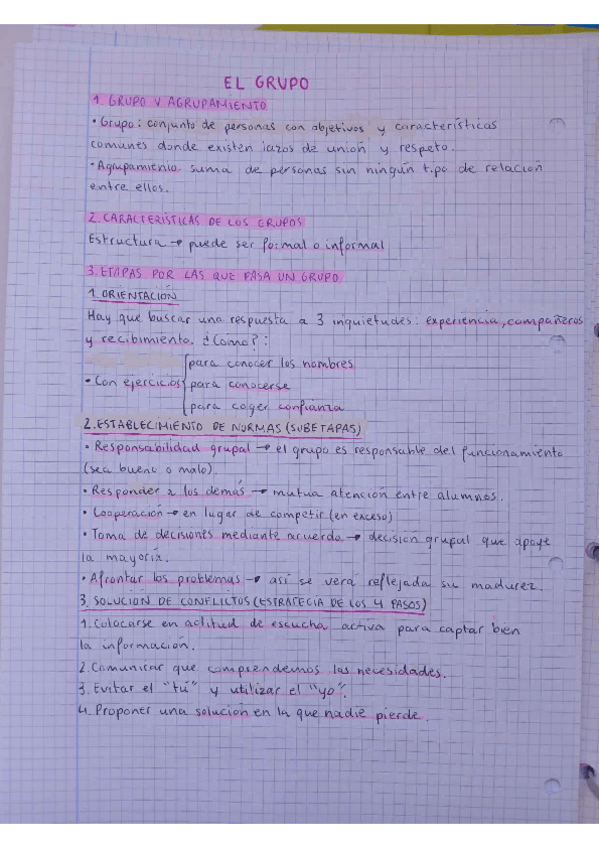 EL GRUPO
1. GRUPO Y AGRUPAMIENTO
• Grupo: conjunto de personas con objetivos y características
comunes donde existen lazos de unión y respeto.
• Agrupamiento. suma de personas sin ningún tipo de relación
entre ellos.
2. CARACTERÍSTICAS DE LOS GRUPOS
Estructura → puede ser formal o informal
3. ETAPAS POR LAS QUE PASA UN GRUPO
1. ORIENTACIÓN
Hay que buscar una respuesta a 3 inquietudes: experiencia, compañeros
y recibimiento. ¿Cómo?:
para conocer los nombres
• Con ejercicios para conocerse
para coger confianza
2. ESTABLECIMIENTO DE NORMAS (SUBETAPAS)
• Responsabilidad grupal → el grupo es responsable del funcionamiento
(sea bueno o malo).
• Responder a los demás → mutua atención entre alumnos.
• Cooperación → en lugar de competir (en exceso)
• Toma de decisiones mediante acuerdo. → decisión grupal que apoye
la mayoría.
• Afrontar los problemas → así se verá reflejada su madurez.
3. SOLUCIÓN DE CONFLICTOS (ESTRATEGIA DE LOS 4 PASOS)
1. Colocarse en actitud de escucha activa para captar bien
la información.
2. Comunicar que comprendemos las necesidades.
3. Evitar el "tú" y utilizar el "yo".
4. Proponer una solución en la que nadie pierde.